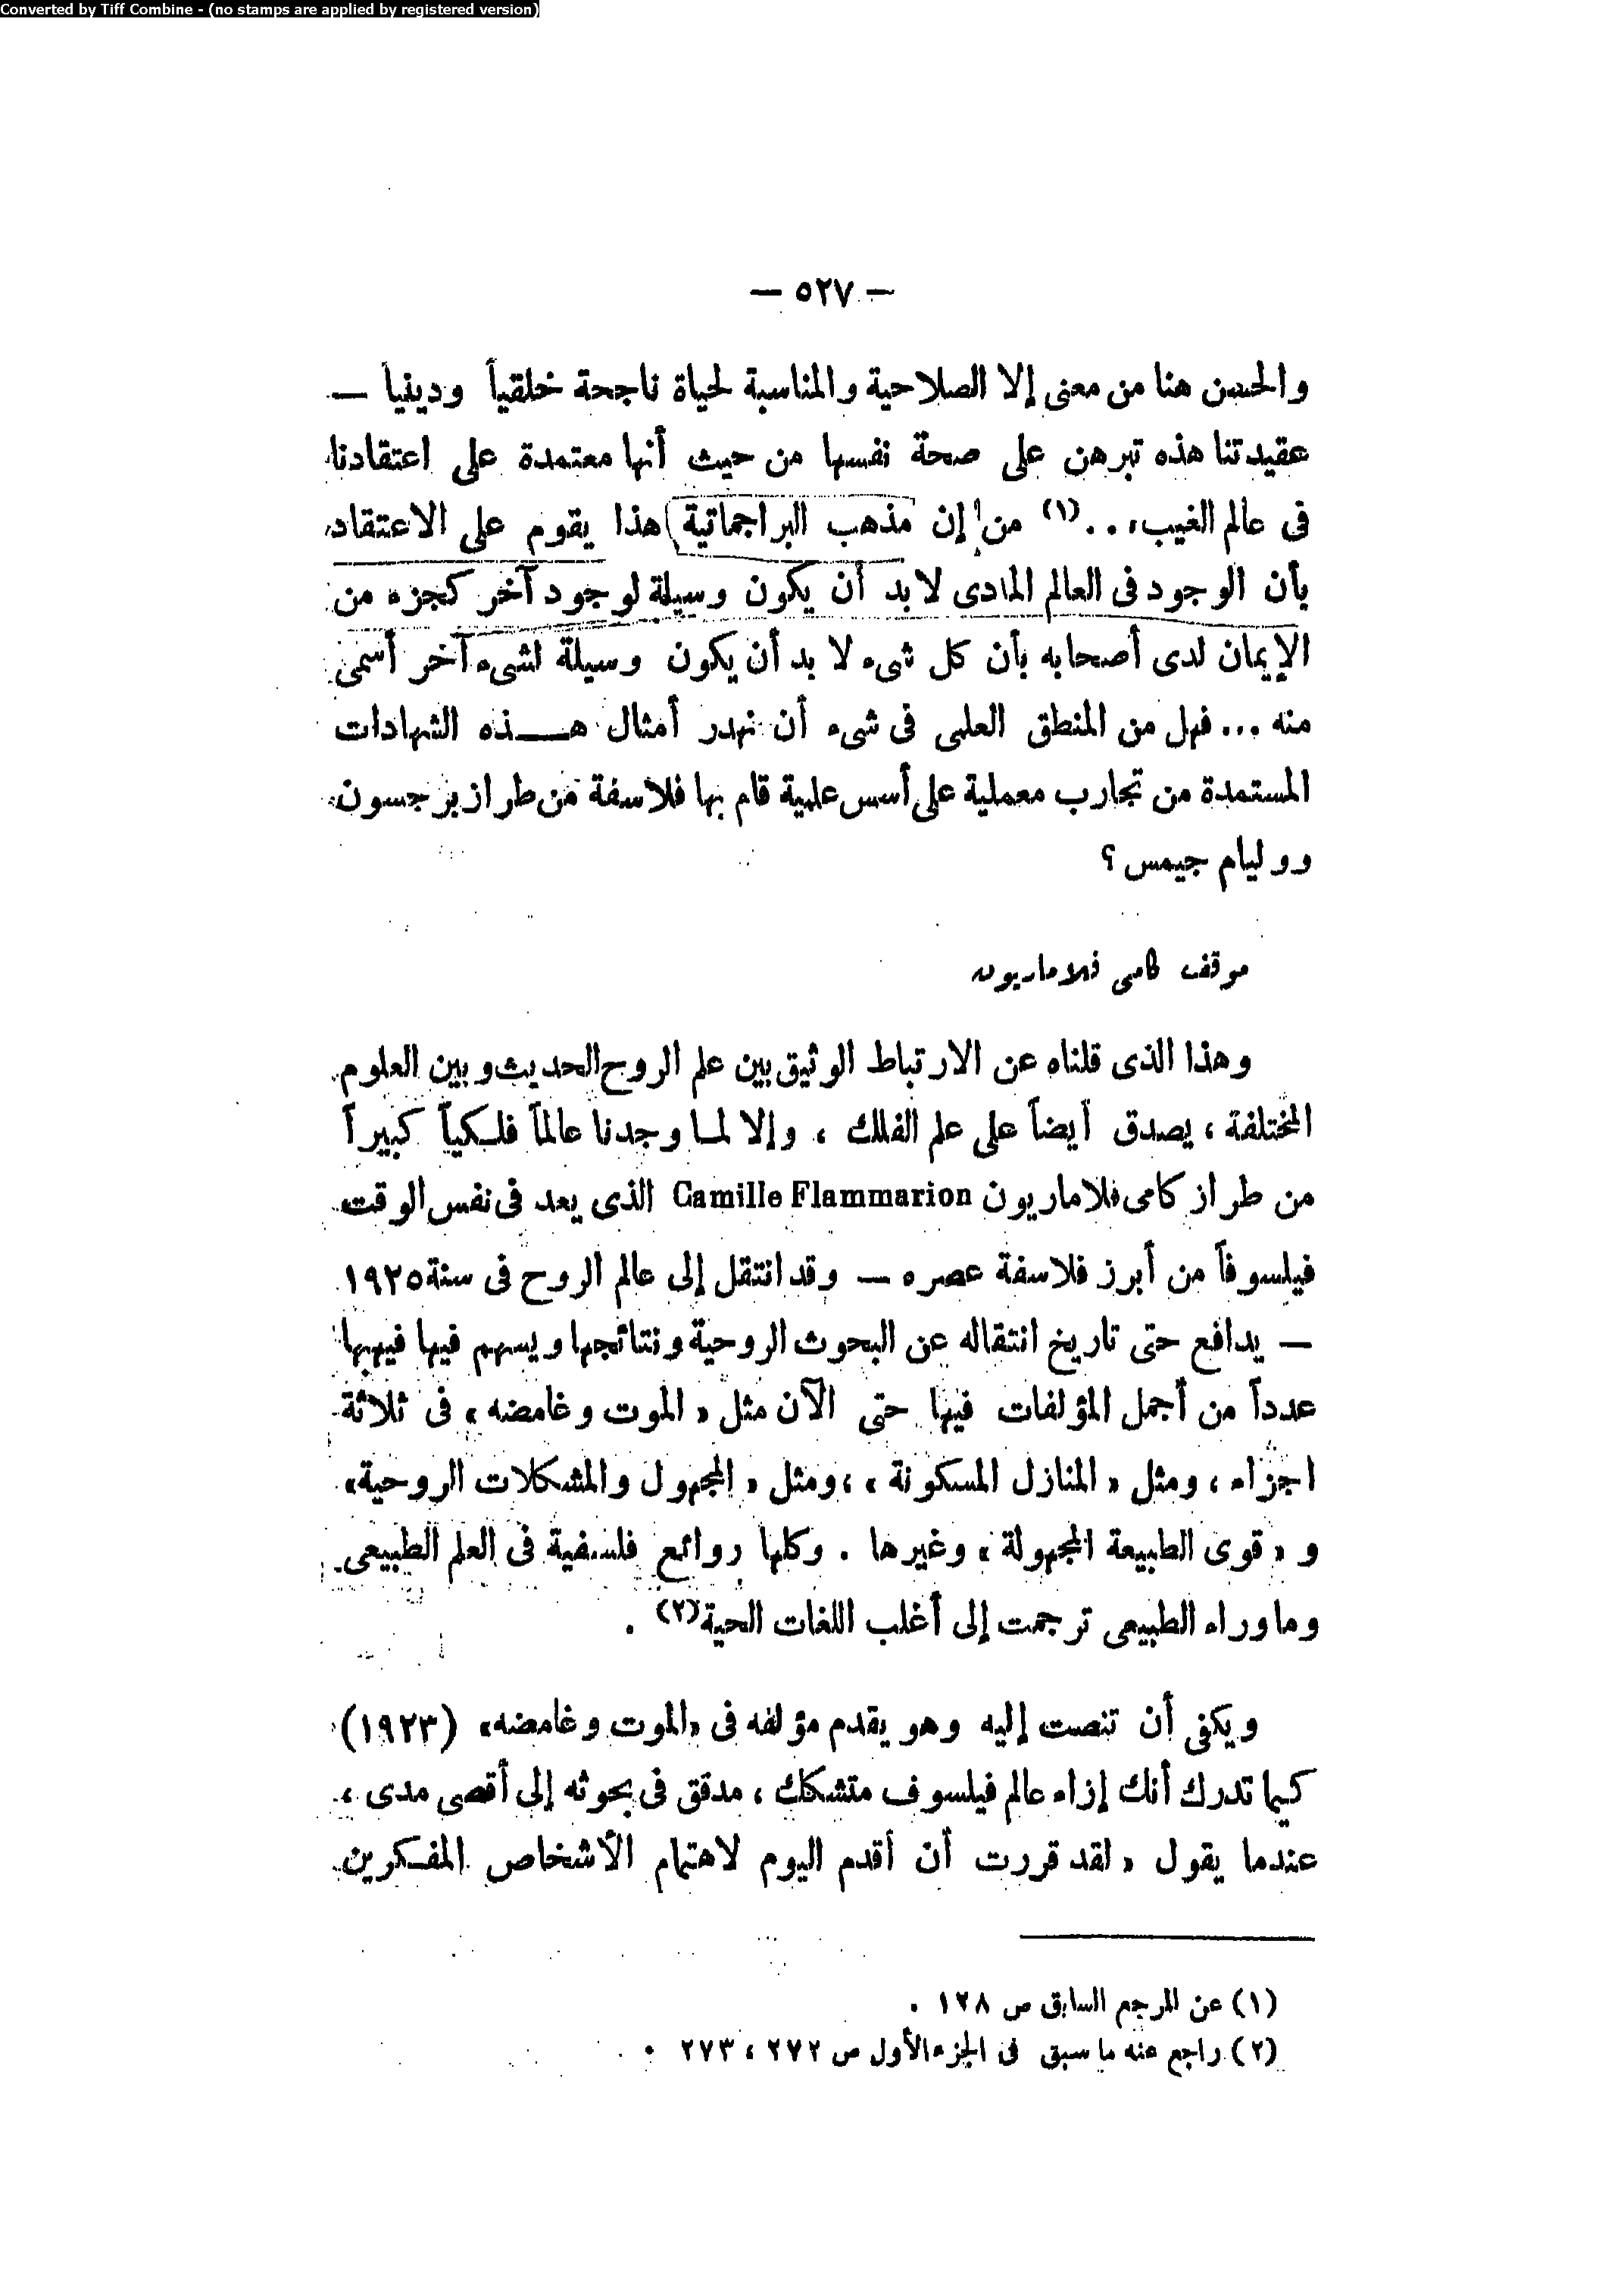 Converted by Tiff Combine - (no stamps are applied by registered version)
— ٥٢٧ —
والحسن هنا من معنى إلا الصلاحية والمناسبة لحياة ناجحة خلقياً ودينياً —
عقيدتنا هذه تبرهن على صحة نفسها من حيث أنها معتمدة على اعتقادنا
فى عالم الغيب، . . (١) من إن مذهب البراجماتية هذا يقوم على الاعتقاد
بأن الوجود فى العالم المادى لابد أن يكون وسيلة لوجود آخر كجزء من
الإيمان لدى أصحابه بأن كل شىء لا بد أن يكون وسيلة لشىء آخر أسمى
منه ... فهل من المنطق العلمى فى شىء أن نهدر أمثال هـــذه الشهادات
المستمدة من تجارب معملية على أسس علمية قام بها فلاسفة من طراز برجسون
ووليام جيمس ؟
موقف كامى فلاماريون
وهذا الذى قلناه عن الارتباط الوثيق بين علم الروح الحديث وبين العلوم
المختلفة ، يصدق أيضاً على علم الفلك ، وإلا لما وجدنا عالماً فلكياً كبيراً
من طراز كامى فلاماريون Camille Flammarion الذى يعد فى نفس الوقت
فيلسوفاً من أبرز فلاسفة عصره — وقد انتقل إلى عالم الروح فى سنة ١٩٢٥
— يدافع حتى تاريخ انتقاله عن البحوث الروحية ونتائجها ويسهم فيها فيهبها
عدداً من أجمل المؤلفات فيها حتى الآن مثل « الموت وغامضه » فى ثلاثة
اجزاء ، ومثل « المنازل المسكونة » ، ومثل « المجهول والمشكلات الروحية»
و « قوى الطبيعة المجهولة » وغيرها . وكلها روائع فلسفية فى العلم الطبيعى
وماوراء الطبيعى ترجمت إلى أغلب اللغات الحية (٢) .
ويكفى أن تنصت إليه وهو يقدم مؤلفه فى «الموت وغامضه» (١٩٢٣)
كيما تدرك أنك إزاء عالم فيلسوف متشكك ، مدقق فى بحوثه إلى أقصى مدى ،
عندما يقول « لقد قررت أن أقدم اليوم لاهتمام الأشخاص المفكرين
(١) عن المرجع السابق ص ١٢٨ .
(٢) راجع عنه ما سبق فى الجزء الأول ص ٢٧٢ ، ٢٧٣ .